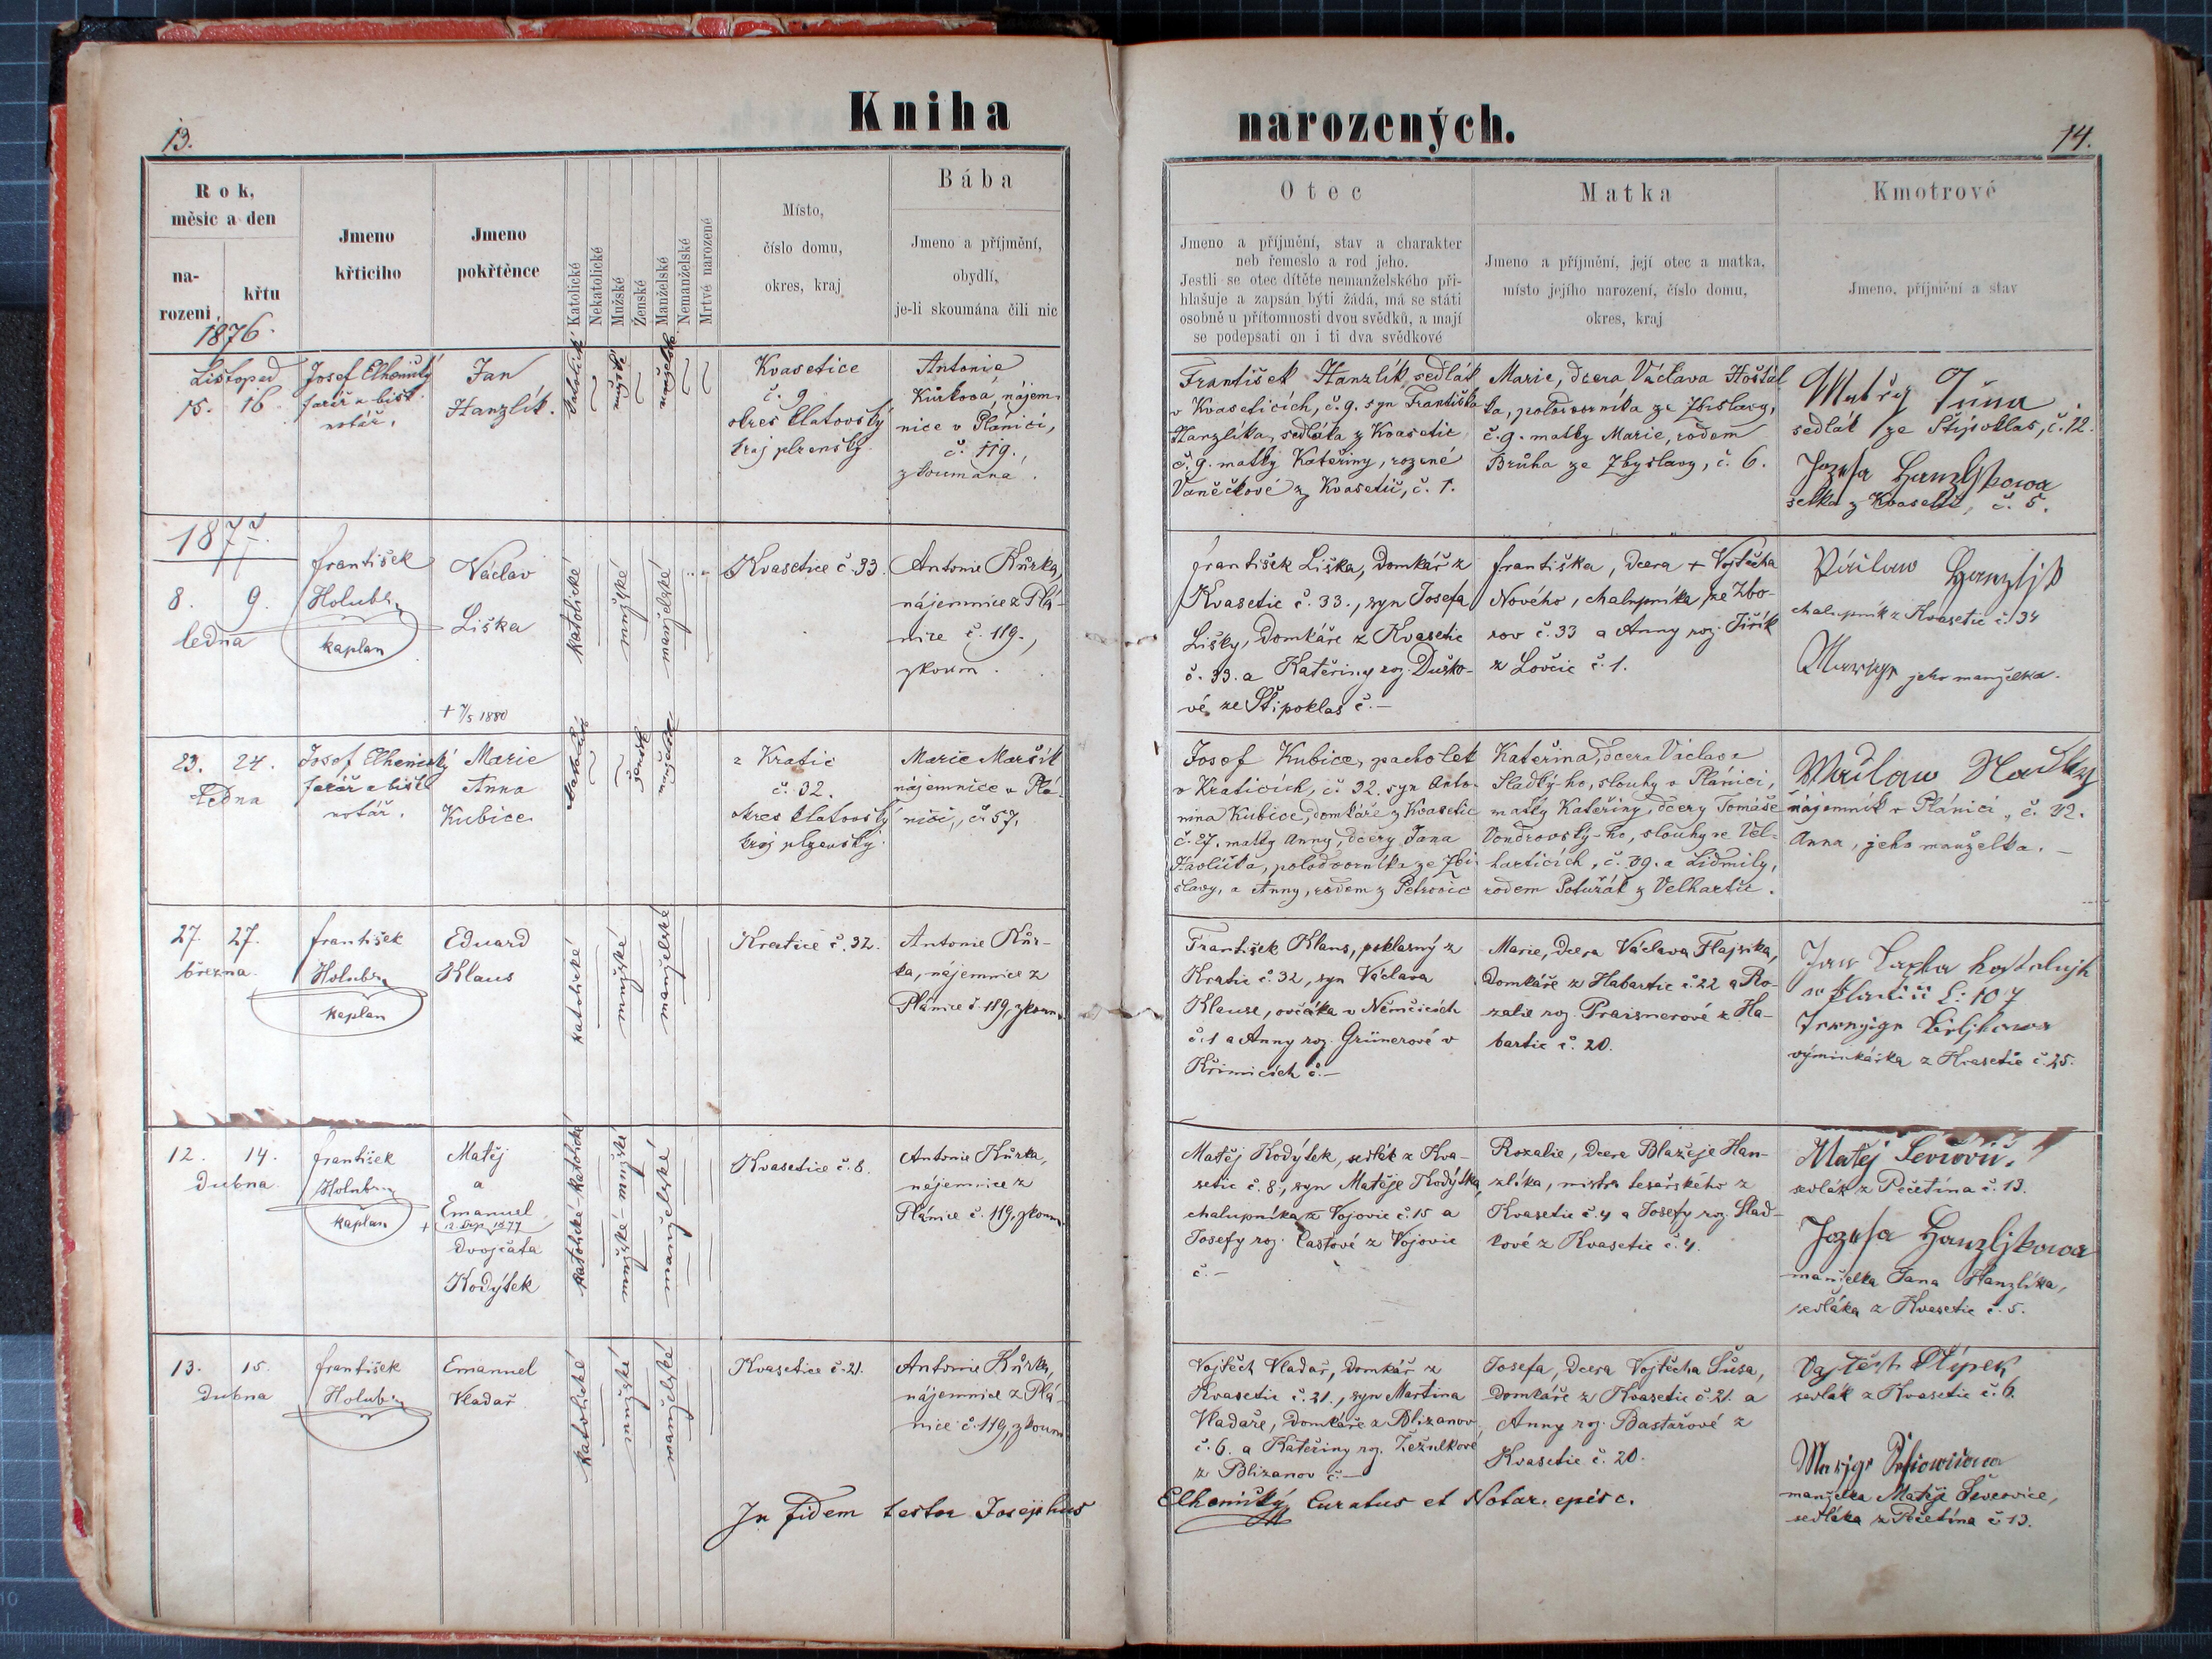 Kniha
narozených.
13.
14.
Rok,
měsíc a den
na-
rozeni
křtu
Jmeno
křticího
Jmeno
pokřtěnce
Katolické
Nekatolické
Mužské
Ženské
Manželské
Nemanželské
Mrtvé narozené
Místo,
číslo domu,
okres, kraj
Bába
Jmeno a příjmění,
obydlí,
je-li skoumána čili nic
Otec
Jmeno a příjmění, stav a charakter
neb řemeslo a rod jeho.
Jestli se otec dítěte nemanželského při-
hlašuje a zapsán býti žádá, má se státi
osobně u přítomnosti dvou svědků, a mají
se podepsati on i ti dva svědkové
Matka
Jmeno a příjmění, její otec a matka,
místo jejího narození, číslo domu,
okres, kraj
Kmotrové
Jmeno, příjmění a stav
1876.
Listopad
15. 16.
Josef Elhenický
farář a bisk.
notář.
Jan
Hanzlík.
katolické
mužské
manželské
Kvasetice
č. 9
okres klatovský
kraj plzenský.
Antonie
Kůrková, nájem-
nice v Plánici,
č. 119.,
zkoumána.
František Hanzlík, sedlák
v Kvaseticích, č. 9. syn Františka
Hanzlíka, sedláka z Kvasetic
č. 9. matky Kateřiny, rozené
Vaněčkové z Kvasetic, č. 1.
Marie, dcera Václava Hoštál
ka, polodvorníka ze Zbislavy,
č. 9. matky Marie, rodem
Brůha ze Zbyslavy, č. 6.
Matěg Tůma
sedlák ze Štipoklas, č. 12.
Jozefa Hanzljkowa
selka z Kvasetic, č. 5.
1877.
8. 9.
ledna
František
Holub
kaplan
Václav
Liška
+ 7/5 1880
katolické
mužské
manželské
Kvasetice č. 33.
Antonie Kůrka,
nájemnice z Plá-
nice č. 119.,
zkoum.
František Liška, domkář z
Kvasetic č. 33., syn Josefa
Lišky, domkáře z Kvasetic
č. 33. a Kateřiny roz. Duško-
vé ze Štipoklas č. –
Františka, dcera + Vojtěcha
Nového, chalupníka ze Zbo-
rov č. 33 a Anny roz. Jiřík
z Lovčic č. 1.
Václaw Hanzljk
chalupník z Kvasetic č. 34
Maryge jeho manželka.
23. 24.
ledna
Josef Elhenický
farář a bisk.
notář.
Marie
Anna
Kubice
katolické
ženské
manželské
z Kratic
č. 32.
okres klatovský
kraj plzenský.
Marie Maršík
nájemnice v Plá-
nici, č. 57.
Josef Kubice, pacholek
v Kraticích, č. 32. syn Anto-
nína Kubice, domkáře z Kvasetic
č. 27. matky Anny, dcery Jana
Havlíčka, polodvorníka ze Zbi-
slavy, a Anny, rodem z Petrovic
Kateřina, dcera Václava
Sladký-ho, slouhy v Plánici,
matky Kateřiny, dcery Tomáše
Vondrovský-ho, slouhy ve Vel-
harticích, č. 39. a Lidmily,
rodem Poturzák z Velhartic.
Wáclaw Sladky
nájemník v Plánici, č. 32.
Anna, jeho manželka. –
27. 27.
března.
František
Holub
kaplan
Eduard
Klaus
katolické
mužské
manželské
Kratice č. 32.
Antonie Kůr-
ka, nájemnice z
Plánice č. 119, zkoum.
František Klaus, poklasný z
Kratic č. 32, syn Václava
Klause, ovčáka v Němčicích
č. 1 a Anny roz. Grünerové v
Křimicích č. –
Marie, dcera Václava Flajsika,
domkáře z Habartic č. 22 a Ro-
zalie roz. Praismerové z Ha-
bartic č. 20.
č: 107
výminkářka z Kvasetic č. 25.
12. 14.
dubna.
František
Holub
kaplan
Matěj
a
Emanuel
+ 12. Srp. 1877
dvojčata
Kodýtek
katolické – katolické
mužské – mužské
manželské
Kvasetice č. 8.
Antonie Kůrka,
nájemnice z
Plánice č. 119, zkoum.
Matěj Kodýtek, sedlák z Kva-
setic č. 8., syn Matěje Kodýtka,
chalupníka z Vojovic č. 15 a
Josefy roz. Častové z Vojovic
č. –
Rozalie, dcera Blažeje Han-
zlíka, mistra tesařského z
Kvasetic č. 4 a Josefy roz. Slad-
kové z Kvasetic č. 4.
Matěj Ševčovic.
sedlák z Pečetína č. 13.
Jozefa Hanzljkowa
manželka Jana Hanzlíka,
sedláka z Kvasetic č. 5.
13. 15.
dubna
František
Holub
Emanuel
Vladař
katolické
mužské
manželské
Kvasetice č. 21.
Antonie Kůrka,
nájemnice z Plá-
nice č. 119, zkoum
Vojtěch Vladař, domkář z
Kvasetic č. 21., syn Martina
Vladaře, domkáře z Blizanov
č. 6. a Kateřiny roz. Žežulkové
z Blizanov č. –
Josefa, dcera Vojtěcha Šůsa,
domkáře z Kvasetic č. 21. a
Anny roz. Bastařové z
Kvasetic č. 20.
Vojtěch Štípek
sedlák z Kvasetic č. 6.
manželka Matěje Ševčovice,
sedláka z Pečetína č. 13.
In fidem testor Josephus
Elhenický Curatus et Notar. episc.